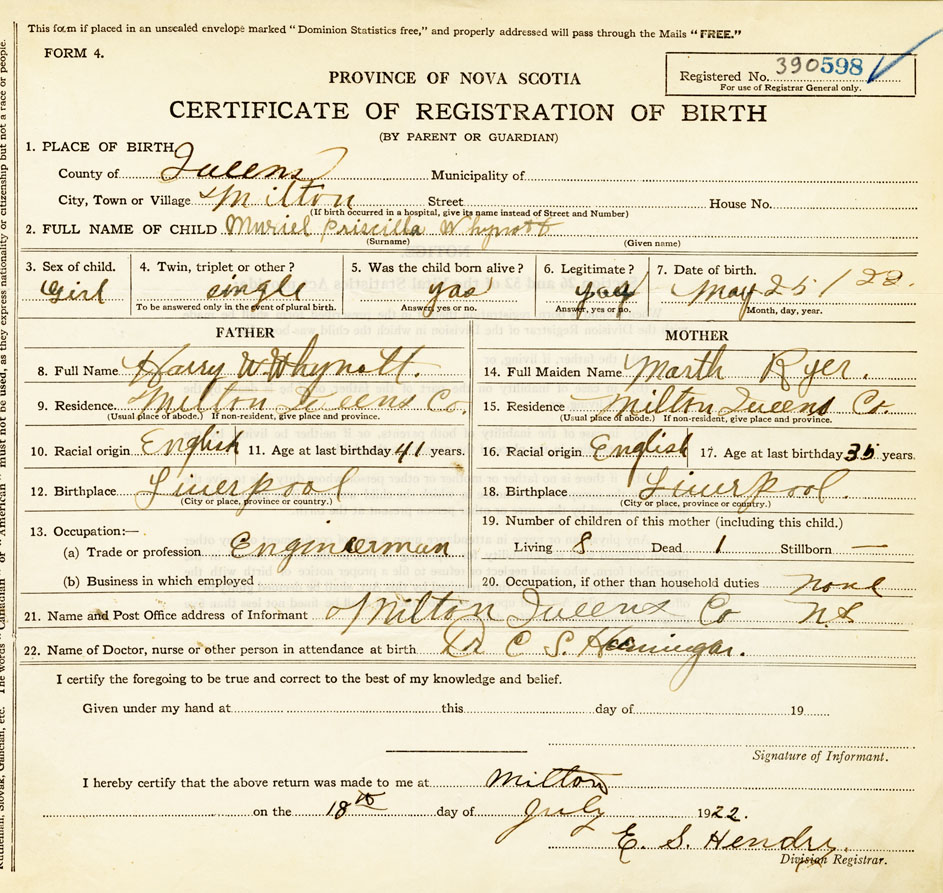 This form if placed in an unsealed envelope marked "Dominion Statistics free," and properly addressed will pass through the Mails "FREE."
FORM 4.
Registered No. 390598
For use of Registrar General only.
PROVINCE OF NOVA SCOTIA
CERTIFICATE OF REGISTRATION OF BIRTH
(BY PARENT OR GUARDIAN)
1. PLACE OF BIRTH
County of Queens Municipality of
City, Town or Village Milton Street House No.
(If birth occurred in a hospital, give its name instead of Street and Number)
2. FULL NAME OF CHILD Muriel Priscilla Whynott
(Surname) (Given name)
3. Sex of child. 4. Twin, triplet or other? 5. Was the child born alive? 6. Legitimate? 7. Date of birth.
Girl single yes yes May 25/22.
To be answered only in the event of plural birth. Answer, yes or no. Answer, yes or no. Month, day, year.
FATHER
8. Full Name Harry W. Whynott.
9. Residence. Milton Queens Co.
(Usual place of abode.) If non-resident, give place and province.
10. Racial origin English 11. Age at last birthday 41 years.
12. Birthplace Liverpool
(City or place, province or country.)
13. Occupation:—
(a) Trade or profession Engineerman
(b) Business in which employed
MOTHER
14. Full Maiden Name Marth Ryer.
15. Residence Milton Queens Co.
(Usual place of abode.) If non-resident, give place and province.
16. Racial origin English 17. Age at last birthday 35 years.
18. Birthplace Liverpool.
(City or place, province or country.)
19. Number of children of this mother (including this child.)
Living 8 Dead 1 Stillborn —
20. Occupation, if other than household duties none
21. Name and Post Office address of Informant Milton Queens Co N.S
22. Name of Doctor, nurse or other person in attendance at birth Dr C S.
I certify the foregoing to be true and correct to the best of my knowledge and belief.
Given under my hand at this day of 19
Signature of Informant.
I hereby certify that the above return was made to me at Milton
on the 18th day of July 1922.
E. S. Hendry.
Division Registrar.